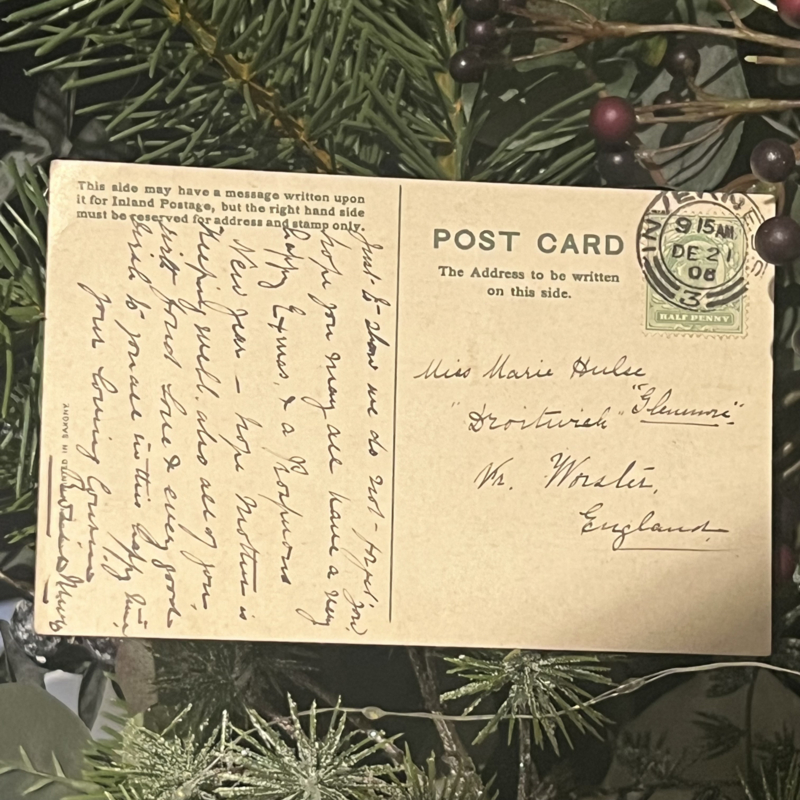 This side may have a message written upon
it for Inland Postage, but the right hand side
must be reserved for address and stamp only.
Just to show we do not forget you,
hope you may all have a very
happy Expmas. & a Prosperous
New year – hope Mother is
Keeping well. also all of you,
with fond Love & every good
wish to you all in this happy time
your Loving Cousins
PRINTED IN SAXONY
POST CARD
The Address to be written
on this side.
INVERNESS
9 15AM
DE 21
08
3
HALF PENNY
Miss Marie Hulse
"Glenmore"
"Droitwich"
Nr. Worster,
England